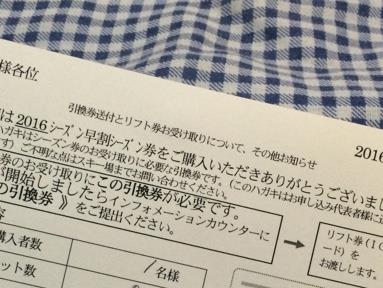 様各位
引換券送付とリフト券お受け取りについて、その他お知らせ
2016
は2016シーズン早割シーズン券をご購入いただきありがとうございまし
ハガキはシーズン券のお受け取りに必要な引換券です。(このハガキはお申し込み代表者様に
す)ご不明な点はスキー場までお問い合わせください。
券のお受け取りにこの引換券が必要です。
が開始しましたらインフォメーションカウンターに
の引換券》をご提出ください。
容
購入者数
/名様
ット数
リフト券(IC
ード)を
お渡しします。